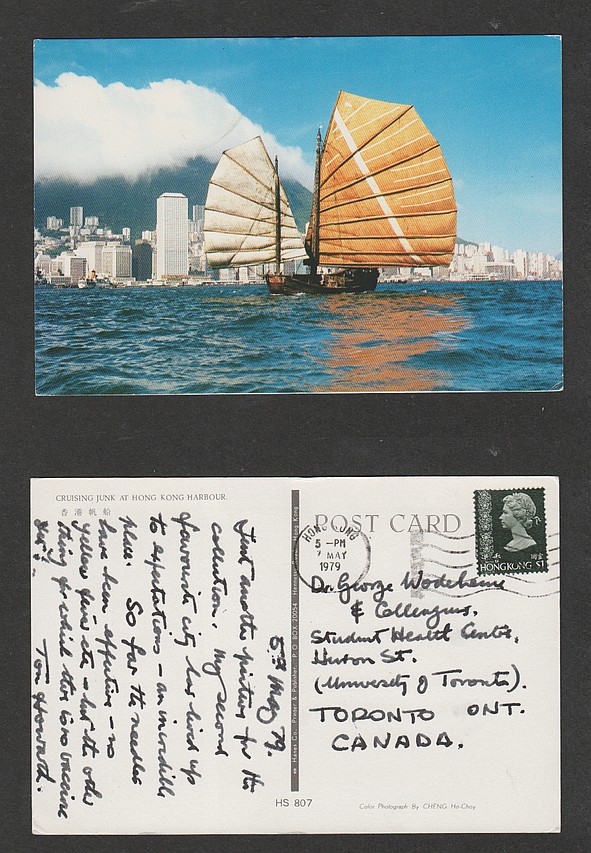 CRUISING JUNK AT HONG KONG HARBOUR.
香港帆船
POST CARD
HONG KONG
5 -PM
7 MAY
1979
HONG KONG $1
5th May 79.
Just another picture for the
collection. My second
favourite city has lived up
to expectations – an incredible
place. So far the needles
have been effective – no
yellow fever etc – but the other
thing for which there is no vaccine
Tom Howarth.
Dr. George Wodehouse
& Colleagues,
Student Health Centre,
Huron St.
(University of Toronto).
TORONTO ONT.
CANADA.
Printer & Publisher. P.O. BOX 20054
HS 807
Color Photograph By CHENG Ho-Choy